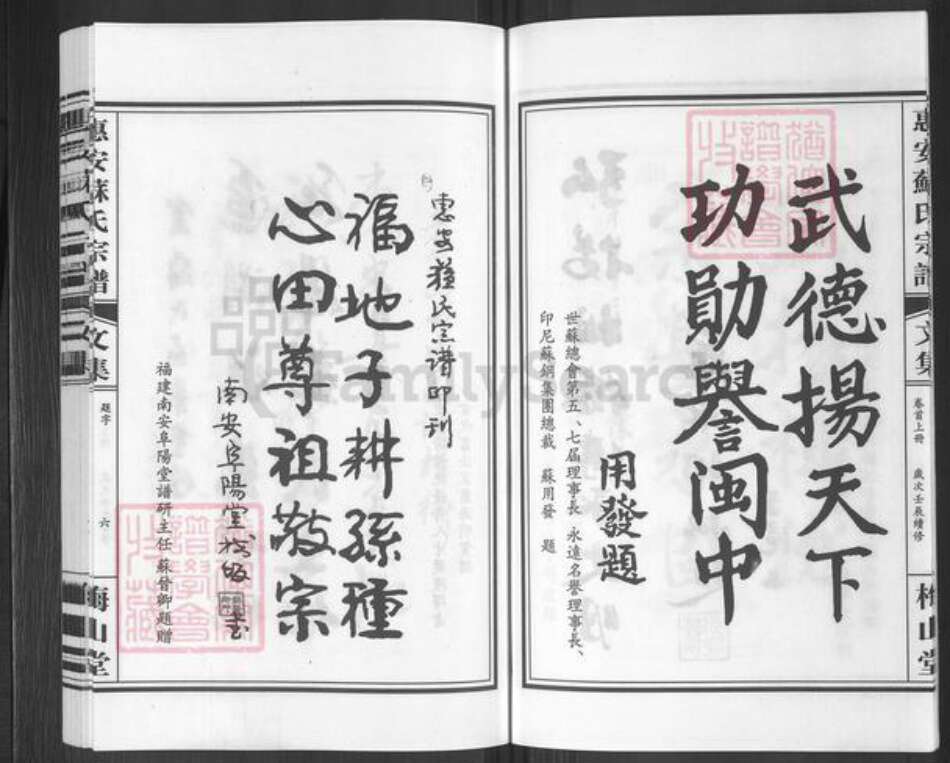 惠安蘇氏宗譜
文集
卷首上冊 歲次壬辰續修
梅山堂
武德揚天下
功勛譽閩中
用發題
世蘇總會第五、七屆理事長、永遠名譽理事長、
印尼蘇鋼集團總裁 蘇用發 題
惠安蘇氏宗譜印刊
福地子耕孫種
心田尊祖敬宗
南安阜陽堂
書
福建南安阜陽堂譜研主任 蘇曾卿題贈
惠安蘇氏宗譜
文集
題字
六
梅山堂
FamilySearch